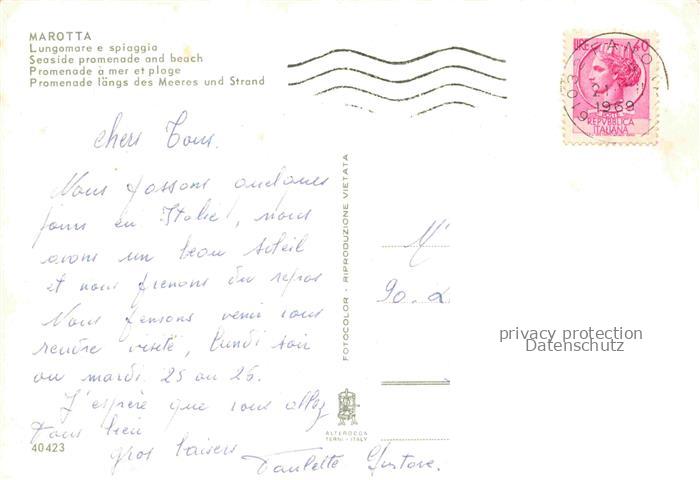 MAROTTA
Lungomare e spiaggia
Seaside promenade and beach
Promenade à mer et plage
Promenade längs des Meeres und Strand
LIRE 40
61032 FANO
1969
POSTE
REPVBBLICA
ITALIANA
chers Tous.
Nous passons quelques
jours en Italie, nous
avons un beau soleil
et nous prenons du repos
Nous pensons venir vous
rendre visite, lundi soir
ou mardi 25 ou 26.
J'espère que vous allez
Tous bien
gros baisers
Paulette Gustave.
40423
FOTOCOLOR - RIPRODUZIONE VIETATA
ALTEROCCA
TERNI - ITALY
90.
privacy protection
Datenschutz